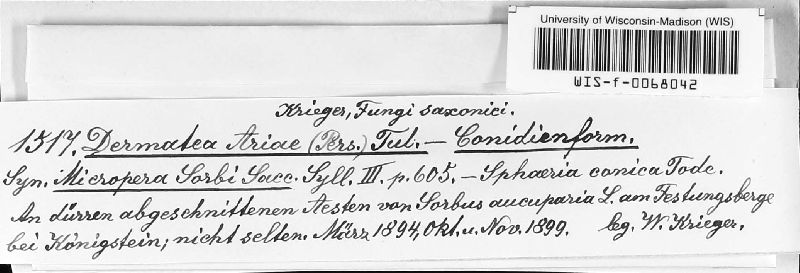 University of Wisconsin-Madison (WIS)
WIS-f-0068042
Krieger, Fungi saxonici.
1517. Dermatea Ariae (Pers.) Tul. — Conidienform.
Syn. Micropera Sorbi Sacc. Syll. III. p. 605. — Sphaeria conica Tode.
An dürren abgeschnittenen Aesten von Sorbus aucuparia L. am Festungsberge
bei Königstein; nicht selten. März 1894, Okt. u. Nov. 1899. leg. W. Krieger.